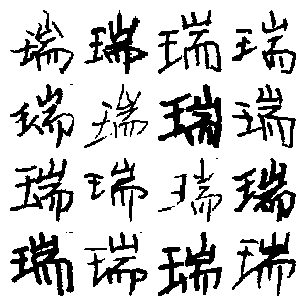 瑞瑞瑞瑞
瑞瑞瑞瑞
瑞瑞瑞瑞
瑞瑞瑞瑞